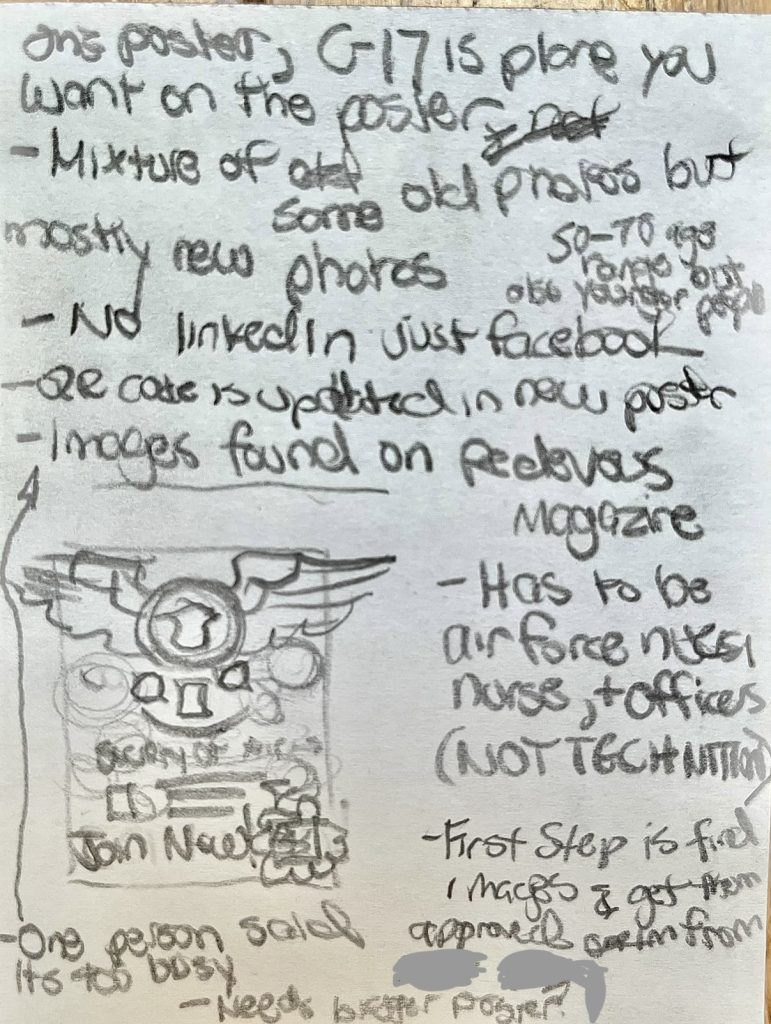 poster, C-17 is plane you
want on the poster,
- Mixture of
some old photos but
mostly new photos
50-70 age
range but
also younger people
- No linkedIn just facebook
- QR code is updated in new poster
- Images found on
Magazine
- Has to be
air force
nurse, + officers
(NOT TECHNITION)
- First Step is find
images & get them
approved from
Society of
Join Now!
- One person said
its too busy
- Needs better poster?